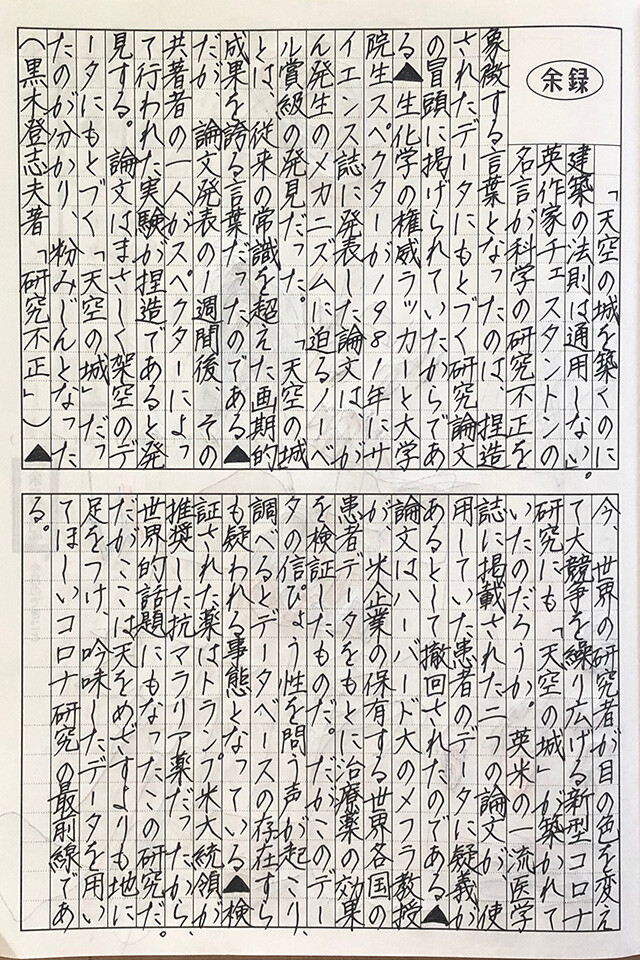 余録
「天空の城を築くのに
建築の法則は通用しない」。
英作家チェスタントンの
名言が科学の研究不正を
象徴する言葉となったのは、捏造
されたデータにもとづく研究論文
の冒頭に掲げられていたからであ
る▲生化学の権威ラッカーと大学
院生スペクターが1981年にサ
イエンス誌に発表した論文は、が
ん発生のメカニズムに迫るノーベ
ル賞級の発見だった。「天空の城」
とは、従来の常識を超えた画期的
成果を誇る言葉だったのである▲
だが、論文発表の1週間後、その
共著者の一人がスペクターによっ
て行われた実験が捏造であると発
見する。論文はまさしく架空のデ
ータにもとづく「天空の城」だっ
たのが分かり、粉みじんとなった
(黒木登志夫著「研究不正」)▲
今、世界の研究者が目の色を変え
て大競争を繰り広げる新型コロナ
研究にも「天空の城」が築かれて
いたのだろうか。英米の一流医学
誌に掲載された二つの論文が、使
用していた患者のデータに疑義が
あるとして撤回されたのである▲
論文はハーバード大のメフラ教授
が、米企業の保有する世界各国の
患者データをもとに治療薬の効果
を検証したものだ。だがこのデー
タの信ぴょう性を問う声が起こり、
調べるとデータベースの存在すら
も疑われる事態となっている▲検
証された薬はトランプ米大統領が
推奨した抗マラリア薬だったから、
世界的話題にもなったこの研究だ。
だがここは天をめざすよりも地に
足をつけ、吟味したデータを用い
てほしいコロナ研究の最前線であ
る。